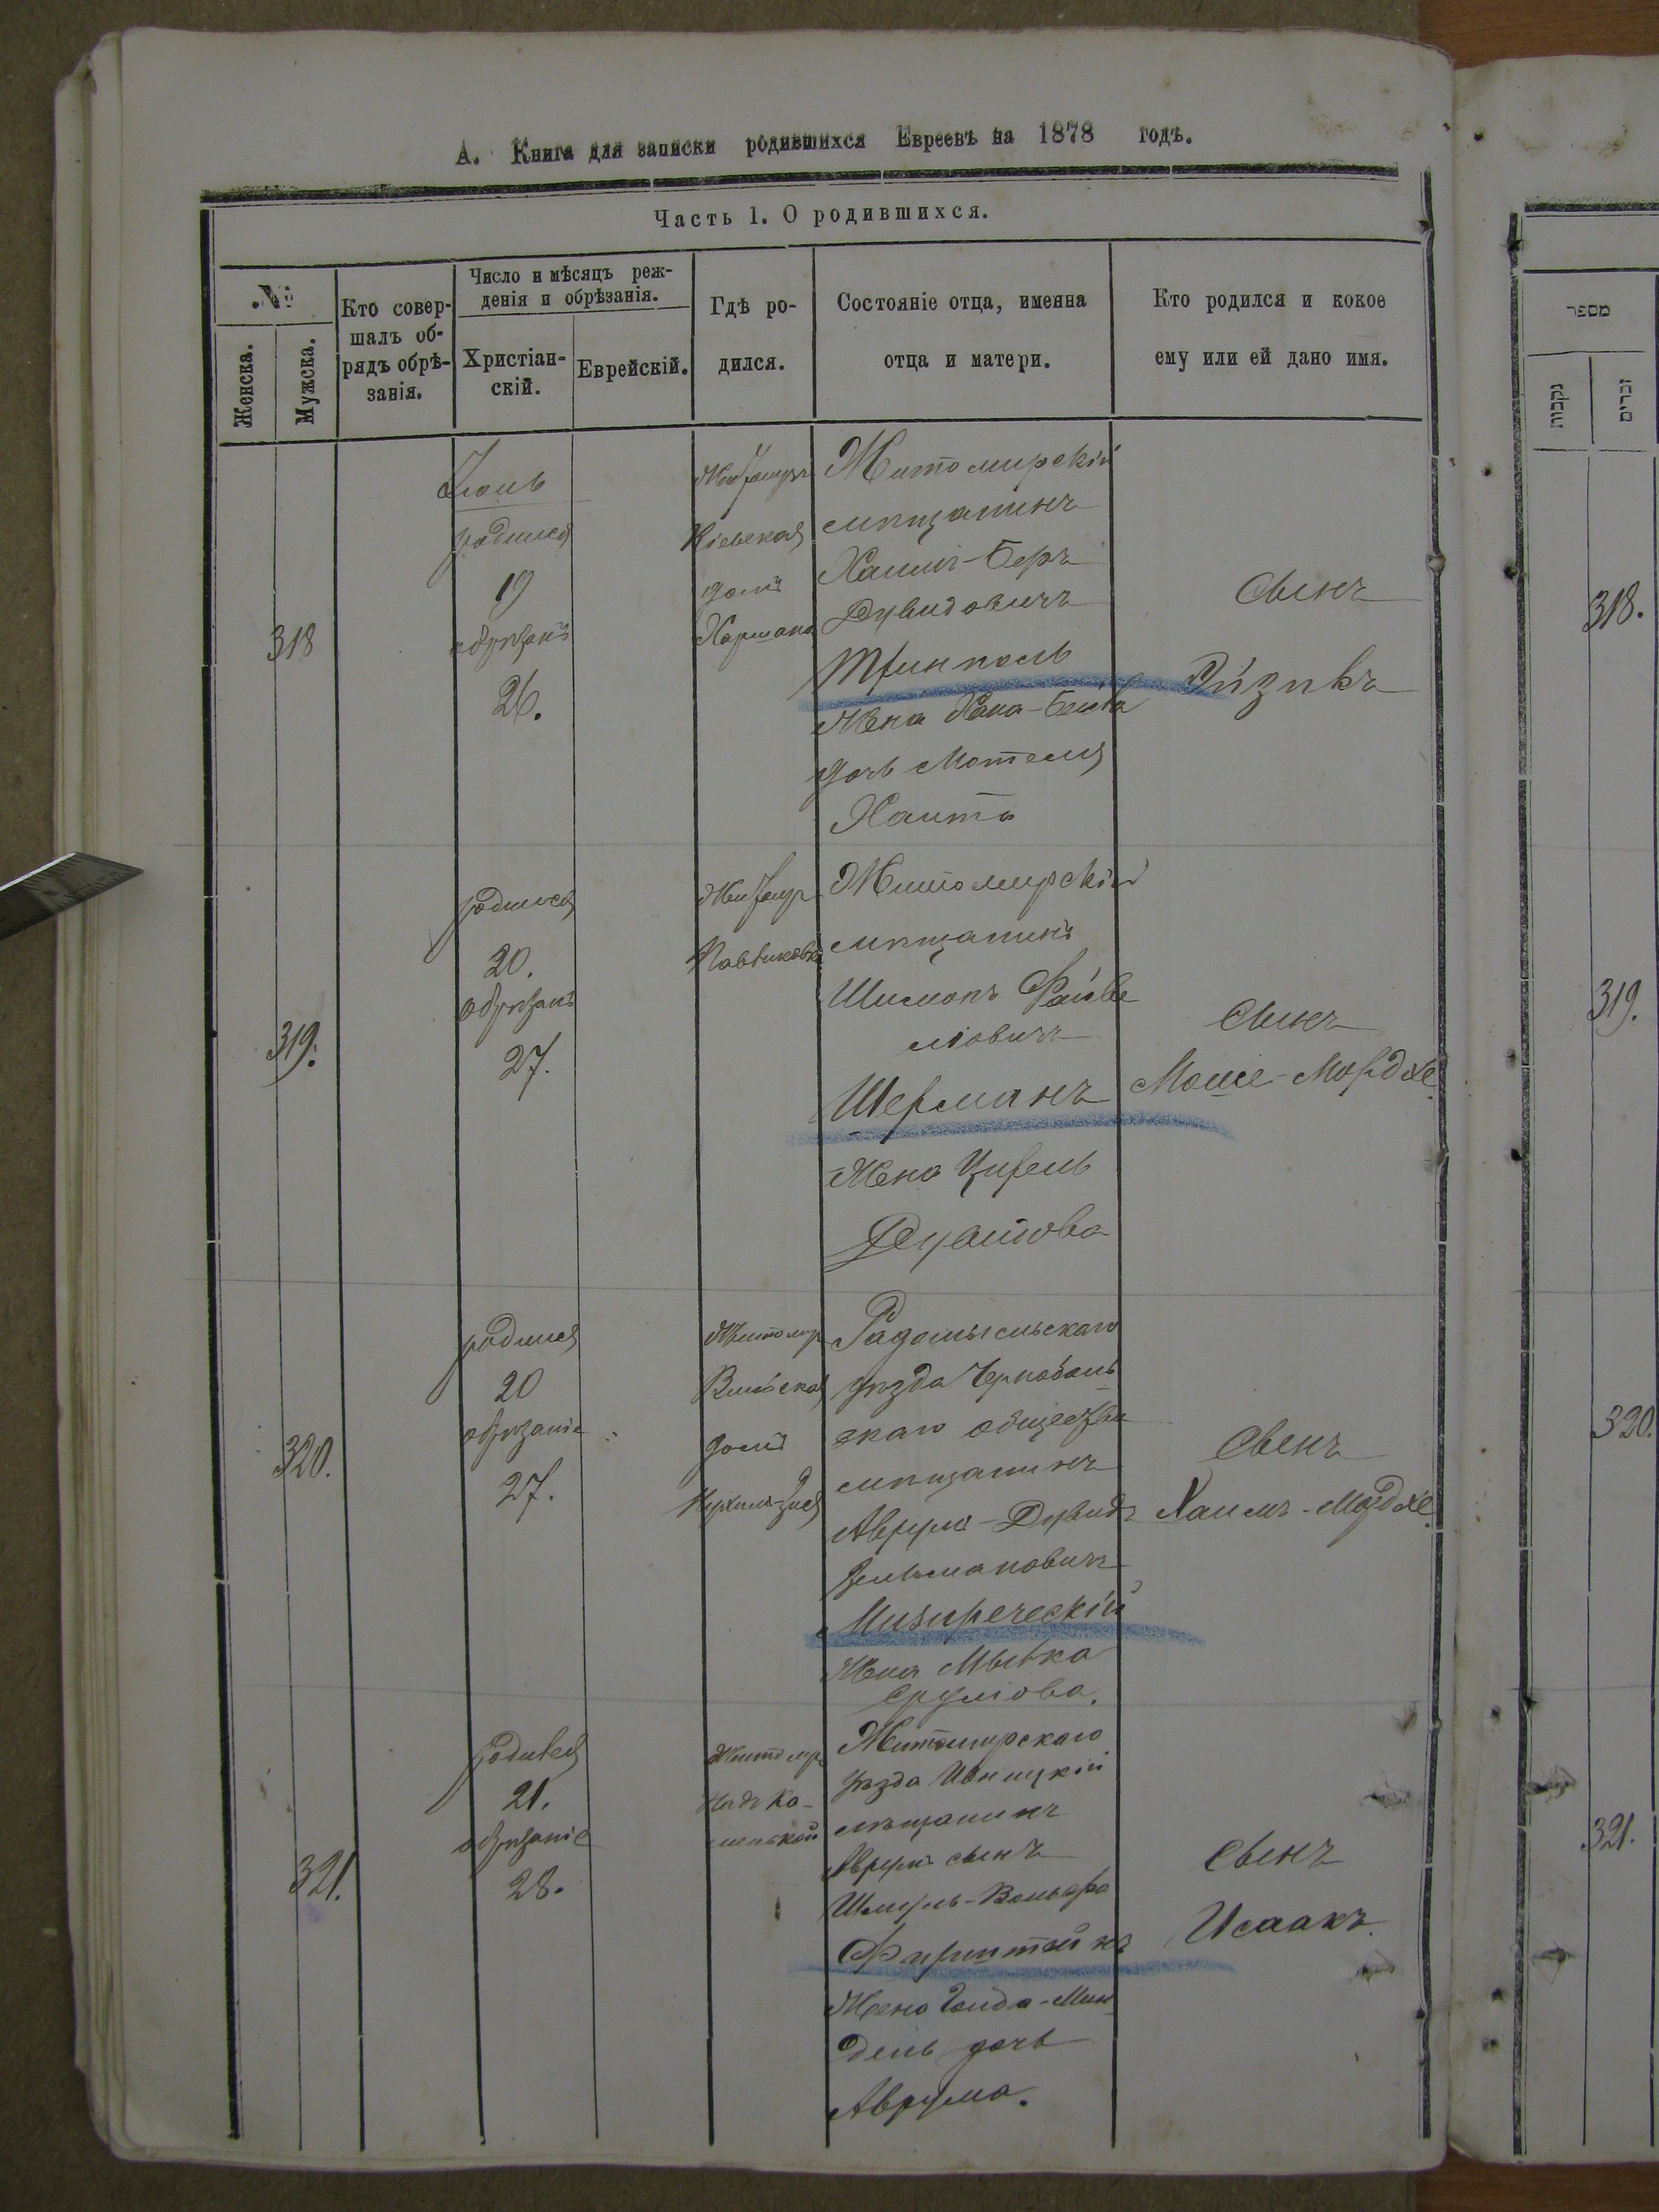 А. Книга для записки родившихся Евреевъ на 1878 годъ.
Часть 1. О родившихся.
№
Женска.
Мужска.
Кто совер-
шалъ об-
рядъ обрѣ-
занія.
Число и мѣсяцъ реж-
денія и обрѣзанія.
Христіан-
скій.
Еврейскій.
Гдѣ ро-
дился.
Состояніе отца, именна
отца и матери.
Кто родился и кокое
ему или ей дано имя.
318
родился
19
обрѣзанъ
26.
Кіевская
домъ
Житомирскій
мѣщанинъ
Хаимъ-Беръ
Дувидовичъ
жена Хана-Бейла
дочь Мотеля
Сынъ
Эйзикъ
319.
родился
20.
обрѣзанъ
27.
Житомирскій
мѣщанинъ
Шимонъ Файве
ліовичъ
Шерманъ
жена
Сынъ
Моше-Мордхе
320.
родился
20
обрѣзаніе
27.
Житомир
домъ
Радомысльскаго
уѣзда Чернобыль
скаго
мѣщанинъ
Аврумъ-Дувидъ
Зельмановичъ
Мизиреческій
жена
Срулова.
Сынъ
Хаимъ-Мордхе
321.
родився
21.
обрѣзаніе
28.
Житомир
Надъ Ка-
менькой
Житомирскаго
уѣзда Ивницкій
мѣщанинъ
Аврумъ сынъ
Шмуль-Вольфа
жена Голда-Мин
дель дочь
Аврума.
Сынъ
Исаакъ.
מספר
נקבות
זכרים
318.
319.
320.
321.